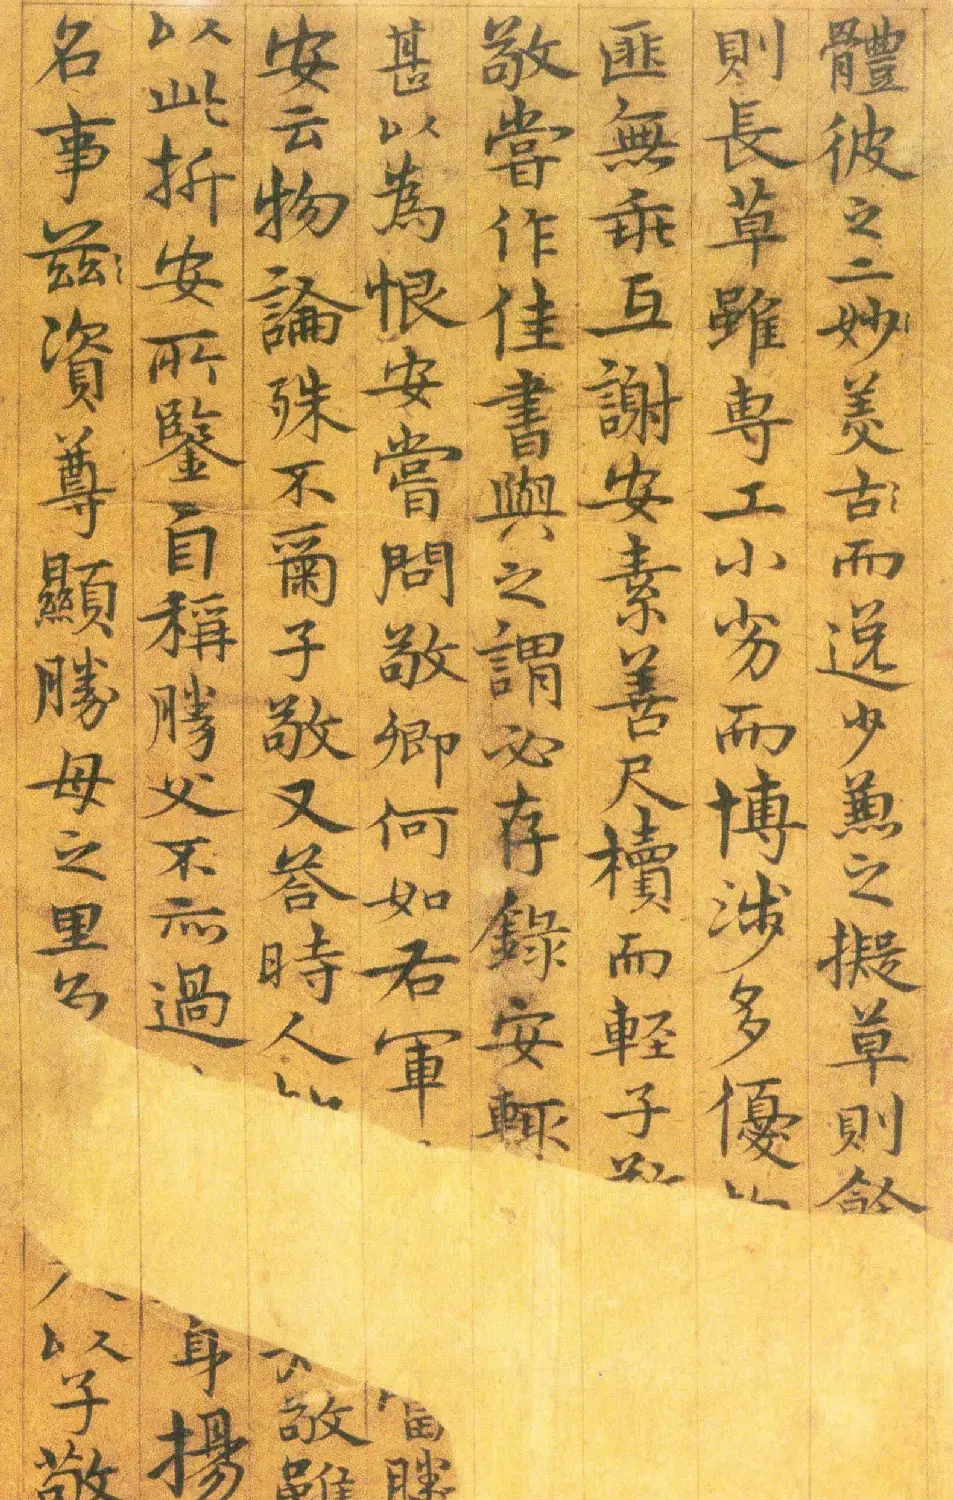 體彼之二妙美古而逸少兼之擬草則餘
則長草雖専工小劣而博涉多優
匪無乖互謝安素善尺牘而輕子敬
敬嘗作佳書與之謂必存錄安輙
甚以為恨安嘗問敬卿何如右軍 當勝
安云物論殊不爾子敬又答時人 敬雖
以此折安所鑒自稱勝父不亦過 身揚
名事茲資尊顯勝母之里 以子敬